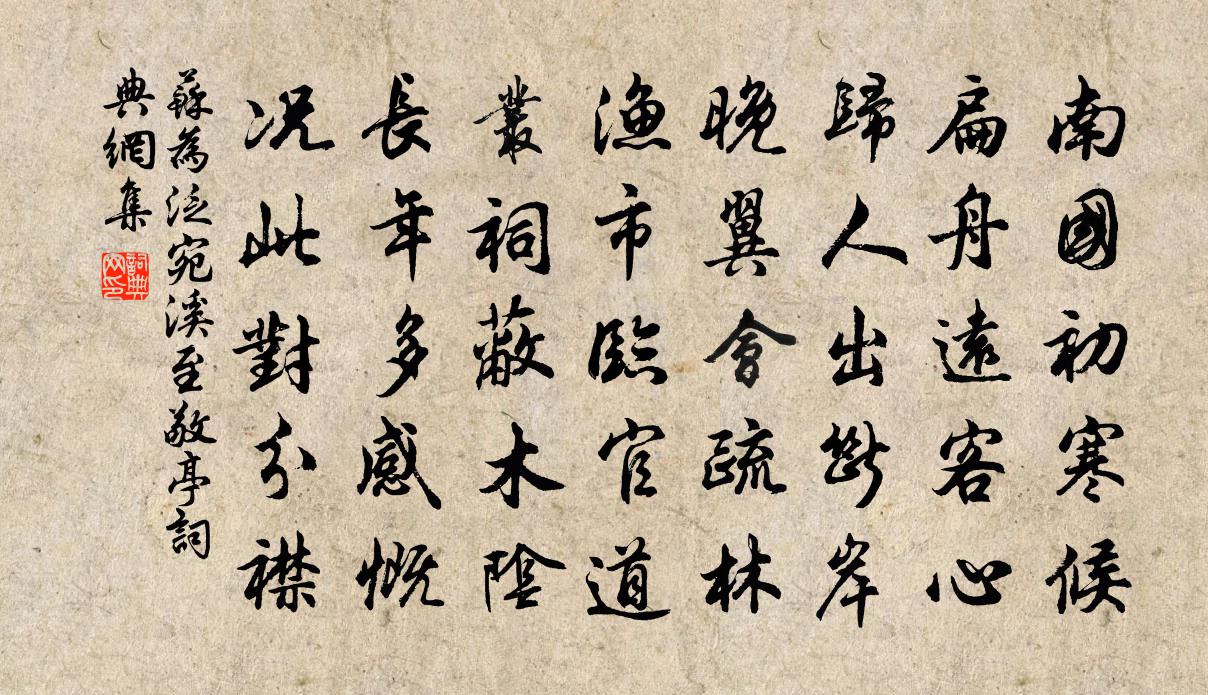 南國初寒候
扁舟遠客心
歸人出斷岸
晚翼會疏林
漁市臨官道
叢祠蔽木陰
長年多感慨
況此對分襟
蘇為泛宛溪至敬亭詞
典網集
詞典
网印